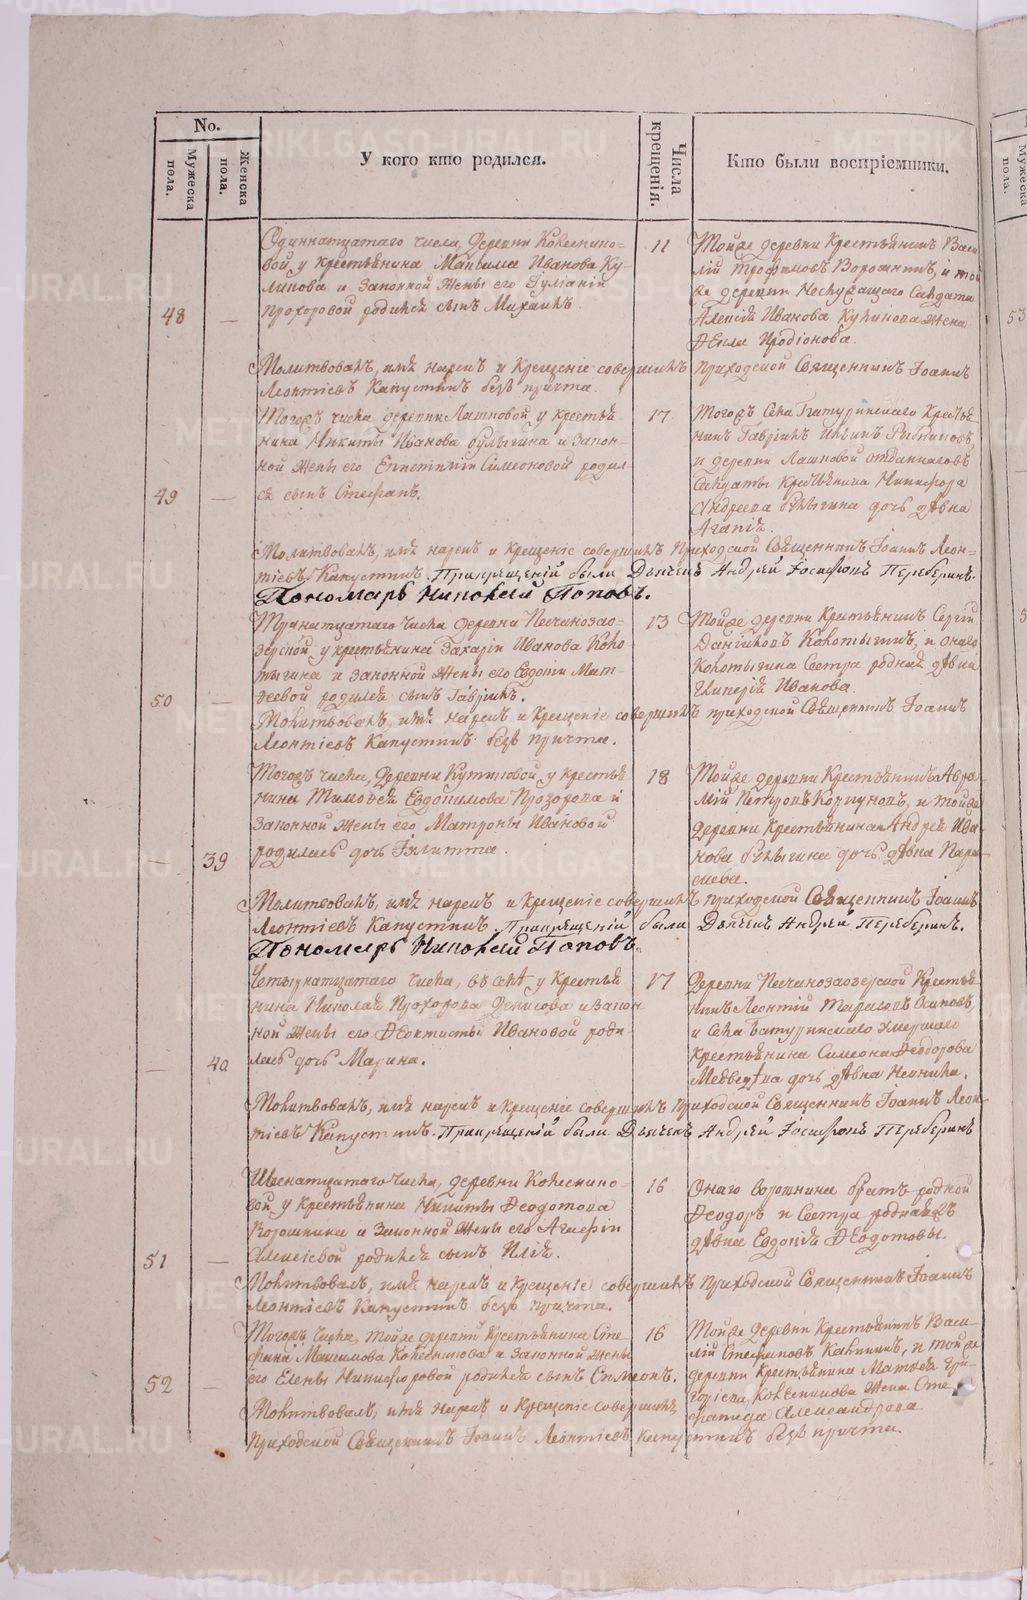 No.
Мужеска пола.
Женска пола.
У кого кто родился.
Числа крещенія.
Кто были воспріемники.
48
—
Одиннатцатаго числа, Деревни Колеснико-
вой у крестьянина Максима Иванова Ку-
ликова и законной жены его Іуліаніи
Прохоровой родился сынъ Михаилъ
11
Тойже деревни Крестьянинъ Васи-
лій Трофимовъ Ворошнинъ, и той
же деревни Солдата
Алексія Иванова Куликова жена
Родіонова.
Молитвовалъ, имя нарекъ и Крещеніе совершилъ приходской Священникъ Іоаннъ
Леонтіевъ Капустинъ безъ причта.
49
—
Тогожъ числа деревни Лашковой у крестья
нина Никиты Иванова Булыгина и закон-
ной жены его Симеоновой родил-
ся сынъ Стефанъ.
17
Тогожъ Села Батуринскаго Крестья
нинъ Гавріилъ Ильинъ
и деревни Лашковой отданнаго въ
Солдаты крестьянина Никифора
Андреева Булыгина дочь дѣвка
Агапія.
Молитвовалъ, имя нарекъ и Крещеніе совершилъ Приходской Священникъ Іоаннъ Леон-
тіевъ Капустинъ. Прикрещеній были Дьячекъ Андрей Іосифовъ Переберинъ.
Пономарь Николай Поповъ.
50
—
Тринатцатаго числа деревни Песчанозао-
зерской у крестьянина Захаріи Иванова Коко
тыгина и законной жены его Евдокіи Мат-
ѳеевой родился сынъ Гавріилъ.
13
Тойже деревни Крестьянинъ Сергій
Даніиловъ Кокотыгинъ, и онаго
Кокотыгина Сестра родная дѣвка
Гликерія Иванова.
Молитвовалъ, имя нарекъ и Крещеніе совершилъ приходской Священникъ Іоаннъ
Леонтіевъ Капустинъ безъ причта.
—
39
Тогожъ числа, Деревни у крестья
нина Тимоѳея Евдокимова Прозорова и
законной жены его Матроны Ивановой
родилась дочь Іулитта.
18
Тойже деревни Крестьянинъ Авра-
мій Петровъ Коргуновъ, и тойже
деревни Крестьянина Андрея Ива
нова Булыгина дочь дѣвка Парас-
кева.
Молитвовалъ, имя нарекъ и Крещеніе совершилъ приходской Священникъ Іоаннъ
Леонтіевъ Капустинъ. Прикрещеній были Дьячекъ Андрей Переберинъ.
Пономарь Николай Поповъ.
—
40
Четырнатцатаго числа, въ селѣ у Крестья
нина Николая Прохорова Денисова и закон
ной жены его Ѳеоктисты Ивановой роди
лась дочь Марина.
17
Деревни Песчанозаозерской Крестья
нинъ Леонтій Тарасовъ Осиповъ,
и Села Батуринскаго умершаго
крестьянина Симеона Ѳеодорова
Медведева дочь дѣвка Неонила.
Молитвовалъ, имя нарекъ и крещеніе совершилъ Приходской Священникъ Іоаннъ Леон-
тіевъ Капустинъ. Прикрещеній были Дьячекъ Андрей Іосифовъ Переберинъ
51
—
Шеснатцатаго числа, деревни Колеснико-
вой у крестьянина Никиты Ѳеодотова
Ворошнина и законной жены его Агафіи
Алексіевой родился сынъ Илія.
16
Онаго Ворошнина братъ родной
Ѳеодоръ и Сестра родная
дѣвка Евдокія Ѳеодотовы.
Молитвовалъ, имя нарекъ и крещеніе совершилъ приходской Священникъ Іоаннъ
Леонтіевъ Капустинъ безъ причта.
52
—
Тогожъ числа, тойже деревни Крестьянина Сте
фана Максимова Колесникова и законной жены
его Елены Никифоровой родился сынъ Симеонъ.
16
Тойже деревни Крестьянинъ Васи-
лій Стефановъ Калининъ, и тойже
деревни Крестьянина Матвея Гри-
горіева Колесникова жена Сте-
фанида Александрова.
Молитвовалъ, имя нарекъ и Крещеніе совершилъ
Приходской Священникъ Іоаннъ Леонтіевъ Капустинъ безъ причта.
Мужеска пола.
53
METRIKI.GASO-URAL.RU